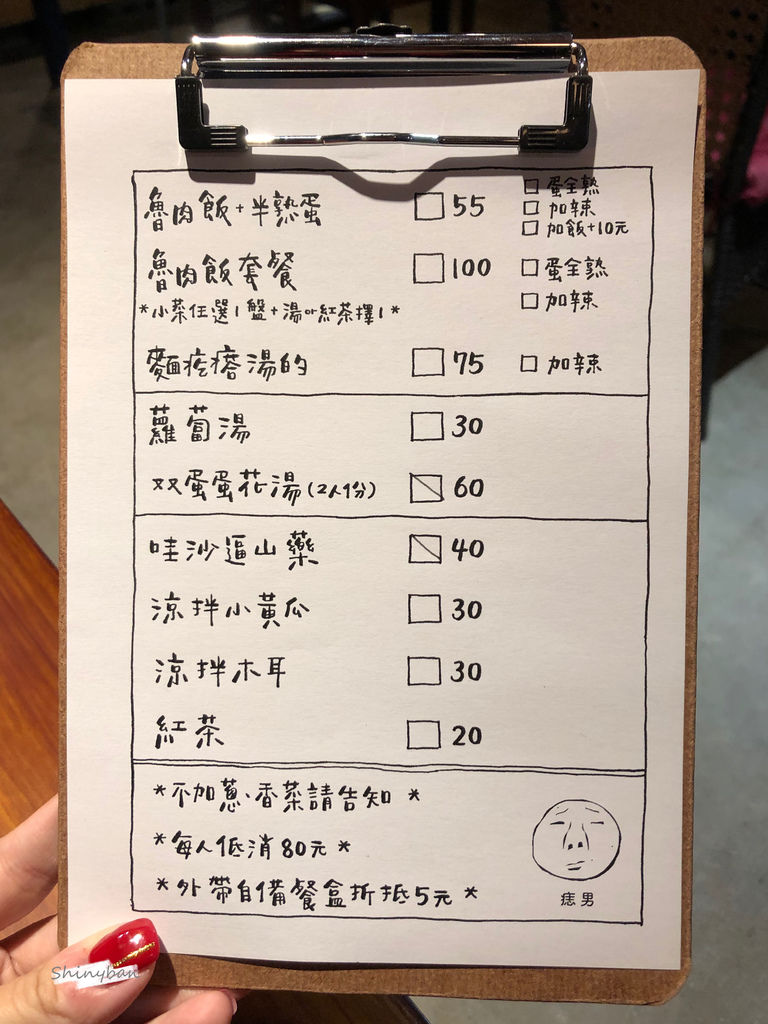 魯肉飯+半熟蛋 □ 55 □ 蛋全熟
□ 加辣
□ 加飯+10元
魯肉飯套餐 □ 100 □ 蛋全熟
□ 加辣
*小菜任選1盤+湯or紅茶擇1*
麵疙瘩湯的 □ 75 □ 加辣
蘿蔔湯 □ 30
双蛋蛋花湯(2人份) 60
哇沙逼山藥 40
涼拌小黃瓜 □ 30
涼拌木耳 □ 30
紅茶 □ 20
*不加蔥、香菜請告知*
*每人低消80元*
*外帶自備餐盒折抵5元*
痣男
Shinyban